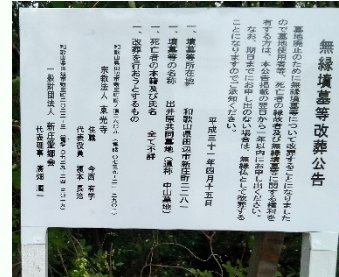 無縁墳墓等改葬公告
墓地廃止のために無縁墳墓等について改葬することになりました
ので墓地使用者等、死亡者の縁故者及び無縁墳墓等に関する権利を
有する方は、本公告掲載の翌日から一年以内にお申し出ください。
なお、期日までにお申し出のない場合は、無縁仏として改葬する
ことになりますのでご承知ください。
平成三十一年四月十五日
一、墳墓等所在地 和歌山県田辺市新庄町二二八一
一、墳墓等の名称 出井原共同墓地（通称 中山墓地）
一、死亡者の本籍及び氏名 全て不詳
一、改葬を行おうとするもの
宗教法人 東光寺
住職 今西 有学
代表役員
一般財団法人 新庄愛郷会
代表理事